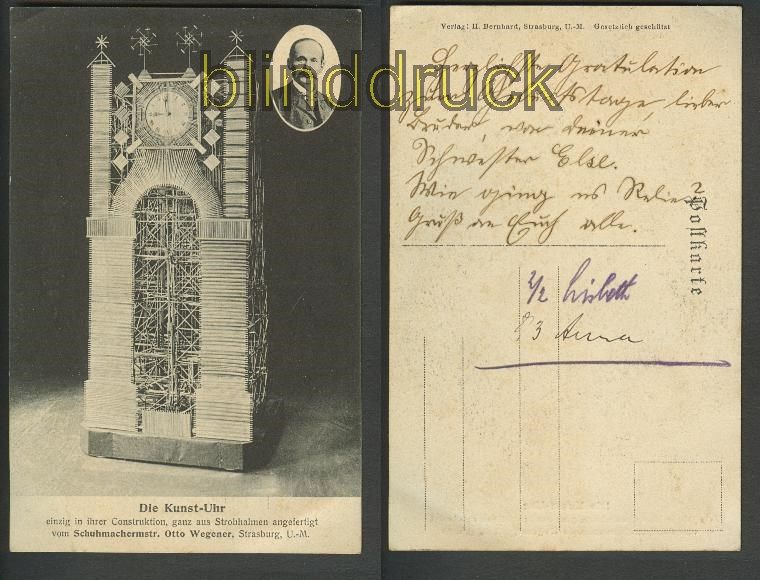 blinddruck
Die Kunst-Uhr
einzig in ihrer Construktion, ganz aus Strohhalmen angefertigt
vom Schuhmachermstr. Otto Wegener, Strasburg, U.-M.
Verlag: H. Bernhard, Strasburg, U.-M. Gesetzlich geschützt
Herzlichste Gratulation
zum Geburtstage, lieber
Bruder, von deiner
Schwester Else.
Wie ging es
Gruß an Euch alle.
Postkarte
2/2 Lisbeth
3 Anna